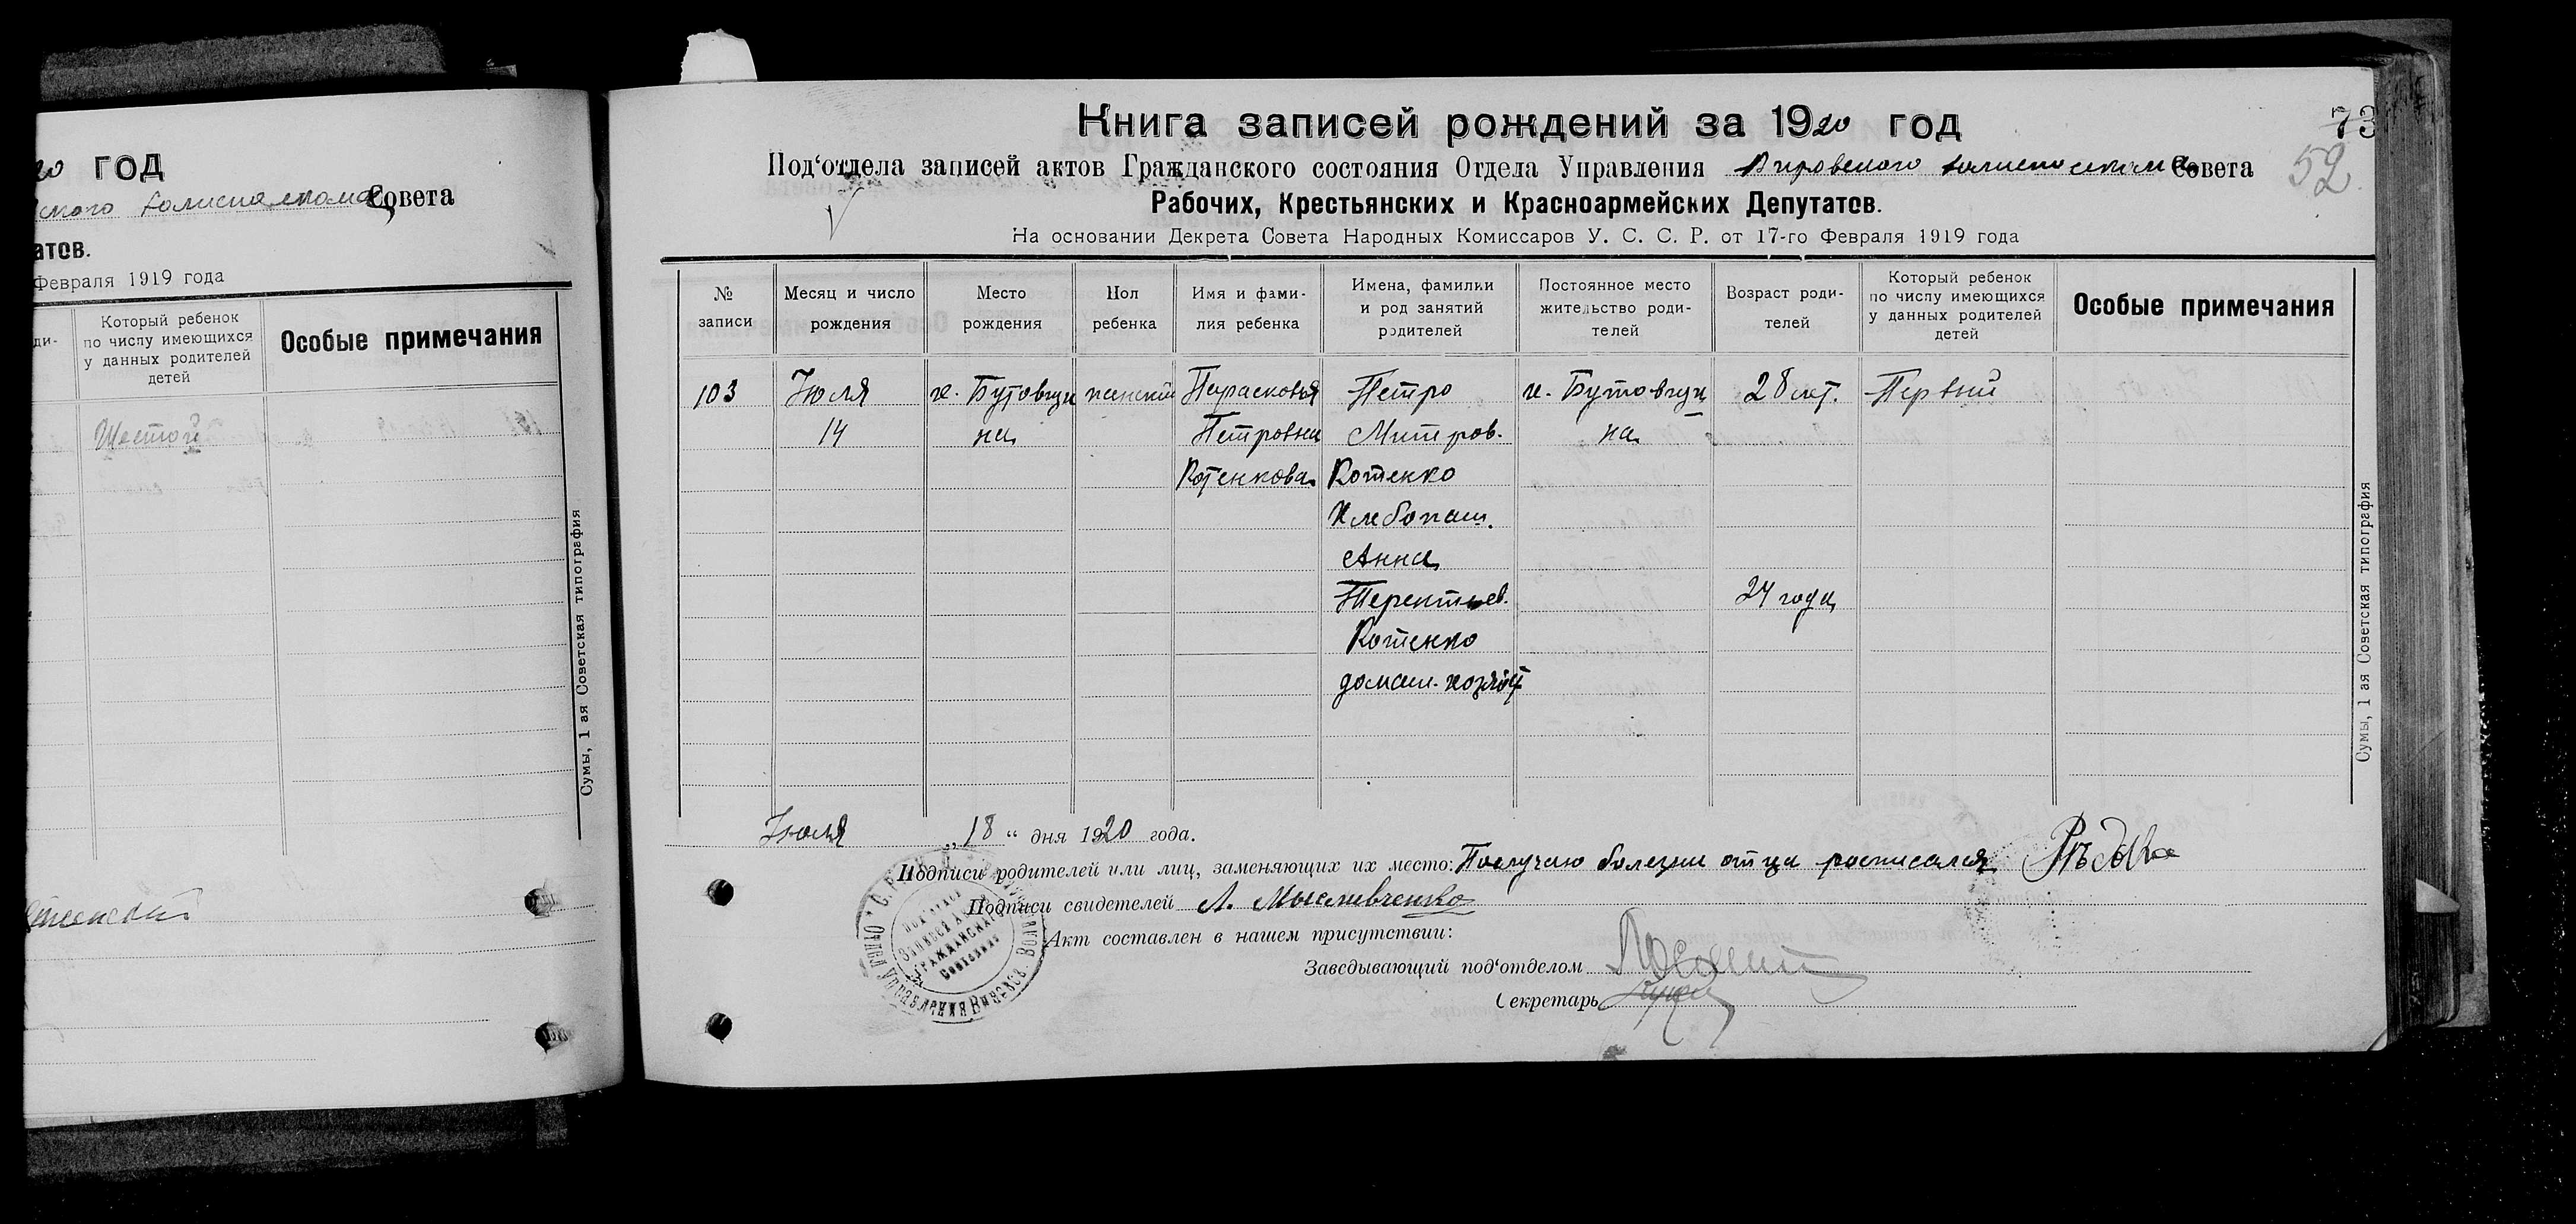 20 год
ского волисполкома Совета
атов.
Февраля 1919 года
ди-
Который ребенок
по числу имеющихся
у данных родителей
детей
Особые примечания
Шестой
Сумы, 1 ая Советская типография
Книга записей рождений за 1920 год
73
Под‘отдела записей актов Гражданского состояния Отдела Управления Вировского волисполкома Совета
52
Рабочих, Крестьянских и Красноармейских Депутатов.
На основании Декрета Совета Народных Комиссаров У. С. С. Р. от 17-го Февраля 1919 года
№
записи
Месяц и число
рождения
Место
рождения
Пол
ребенка
Имя и фами-
лия ребенка
Имена, фамилии
и род занятий
родителей
Постоянное место
жительство роди-
телей
Возраст роди-
телей
Который ребенок
по числу имеющихся
у данных родителей
детей
Особые примечания
103 Июля х. Бутовщи женский Парасковья Петро х. Бутовщи 28 лет. Первый
14 на Петровна Митров. на
Котенкова Котенко
Хлебопаш.
Анна
Терентьев. 24 года
Котенко
домаш. хозяйст
Сумы, 1 ая Советская типография
Июля „18“ дня 1920 года.
Подписи родителей или лиц, заменяющих их место: Послучаю болезни отца росписался
Подписи свидетелей Л. Мысливченко
Акт составлен в нашем присутствии:
Заведывающий под‘отделом
Секретарь